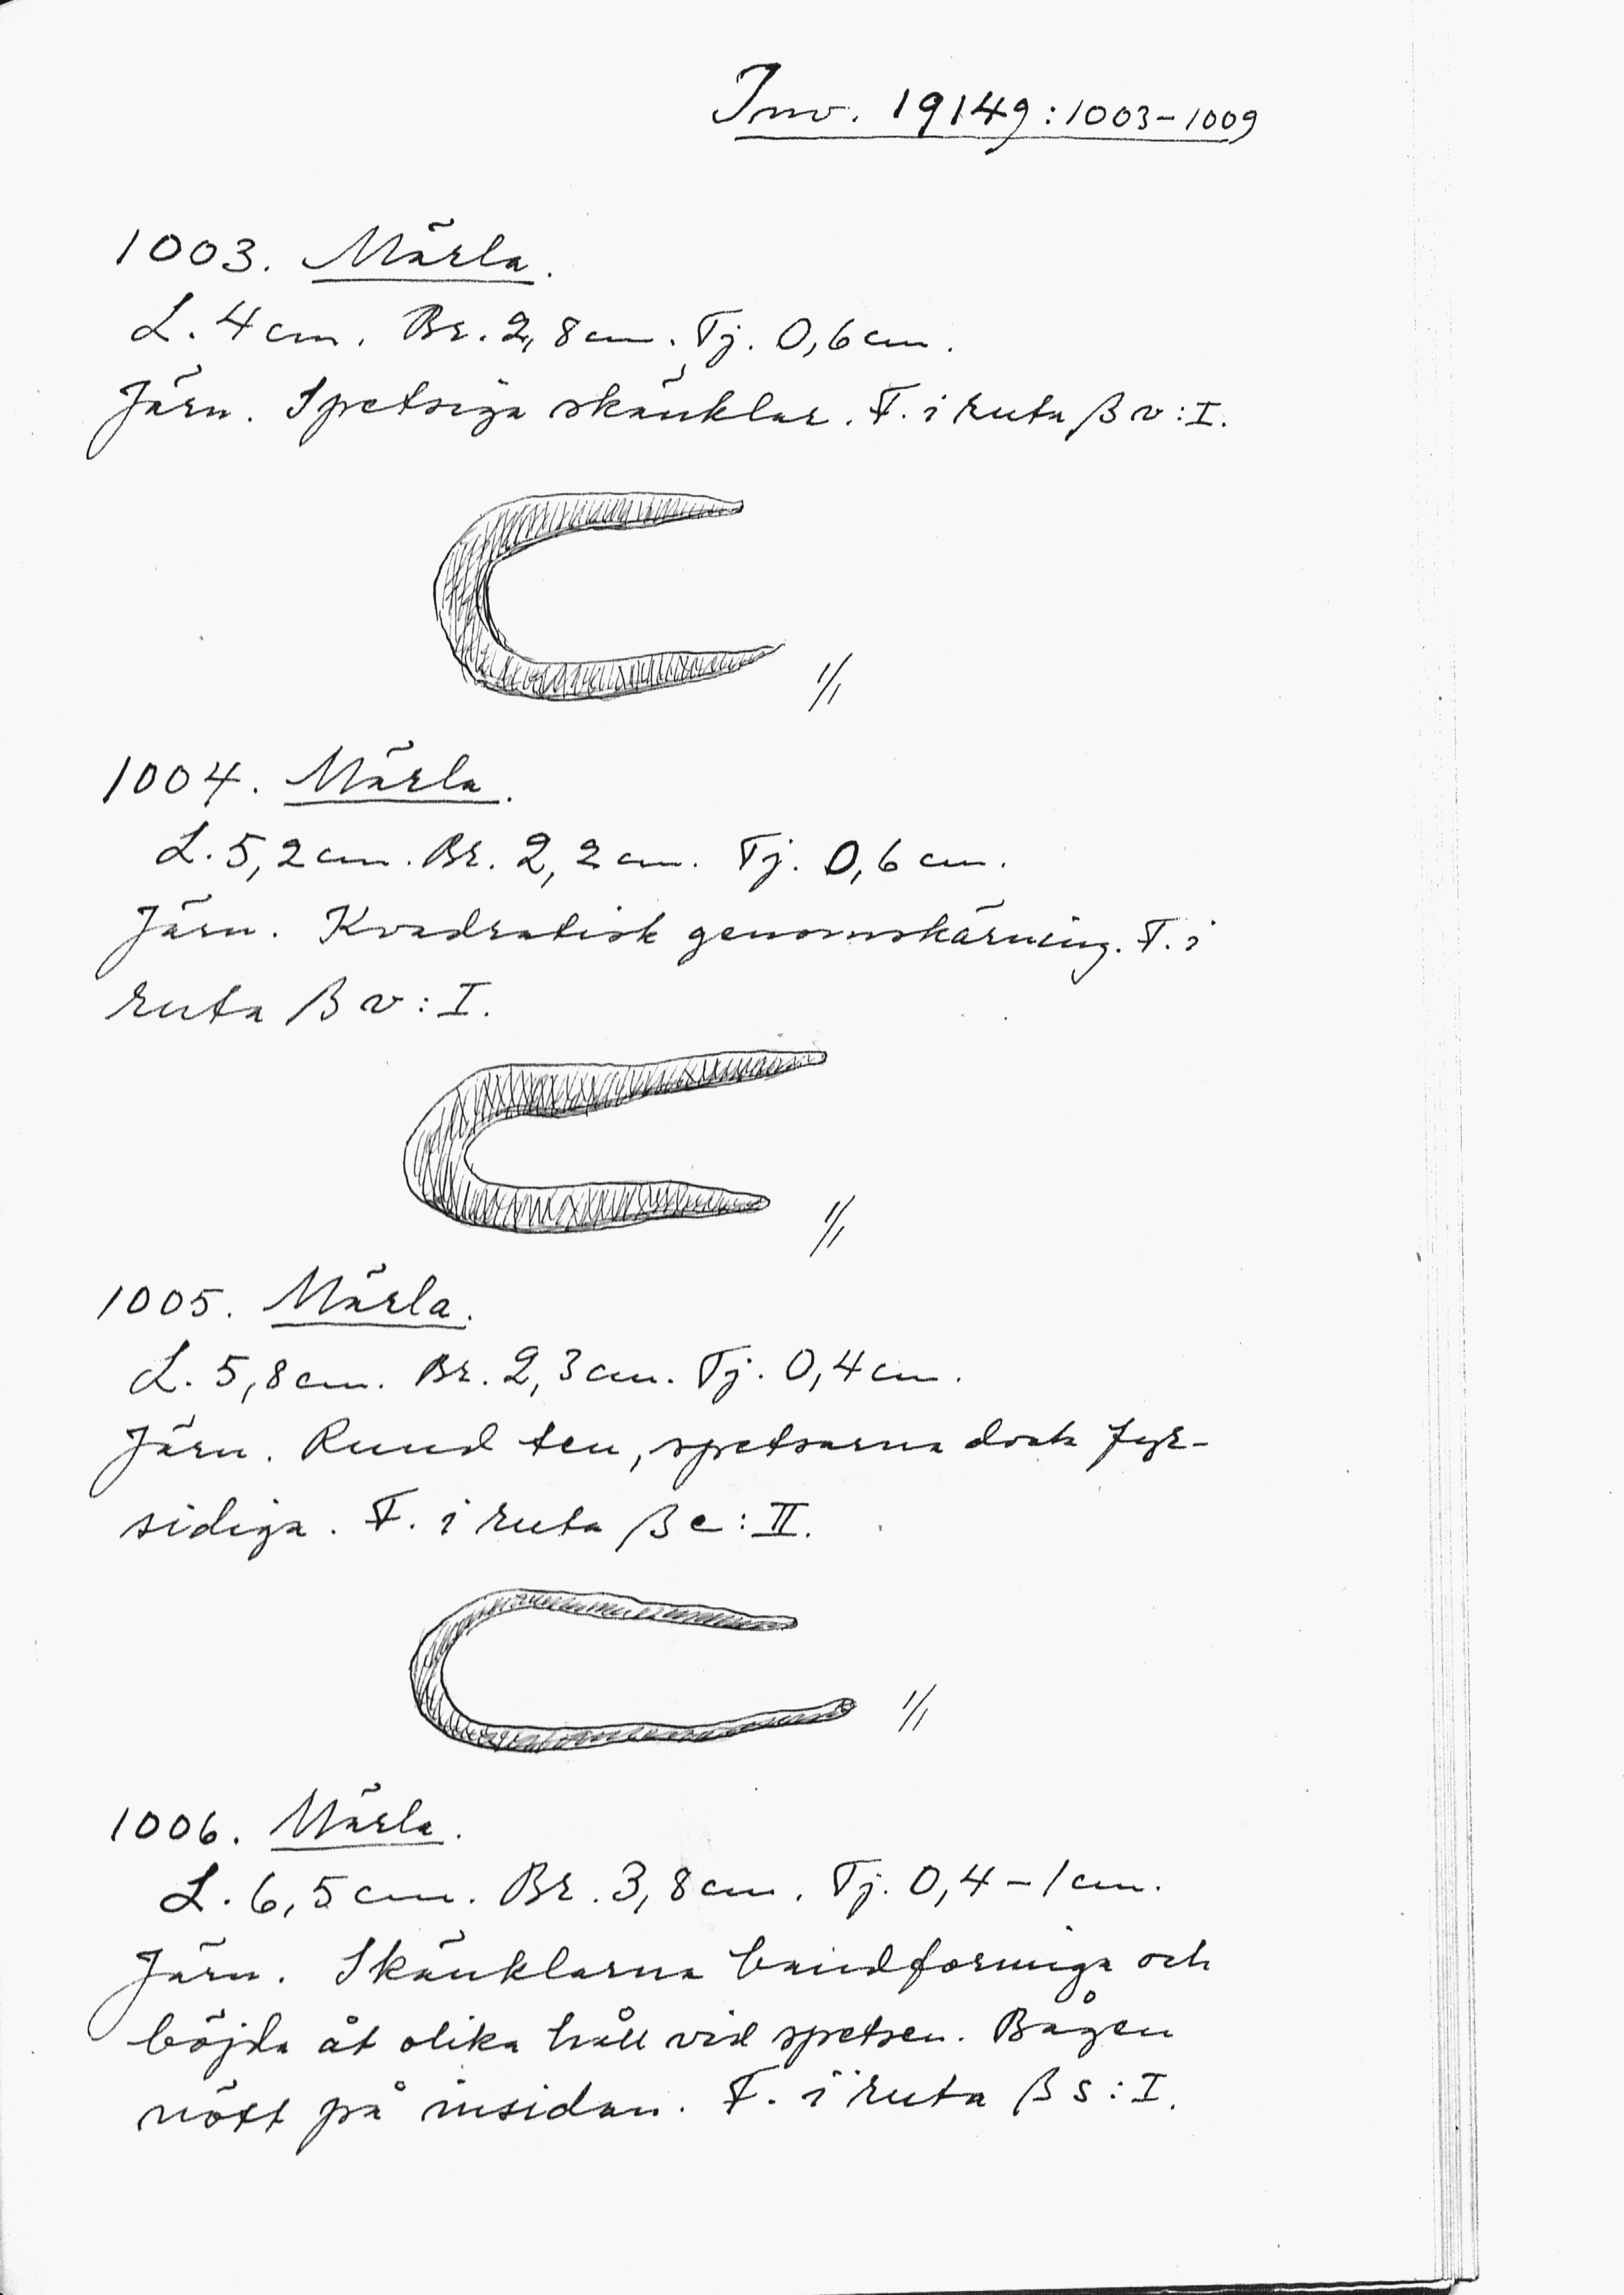 Inv. 19149:1003-1009
1003. Märla.
L. 4 cm. Br. 2,8 cm. Tj. 0,6 cm.
Järn. Spetsiga skänklar. F. i ruta β v:I.
1/1
1004. Märla.
L. 5,2 cm. Br. 2,2 cm. Tj. 0,6 cm.
Järn. Kvadratisk genomskärning. F. i
ruta β v:I.
1/1
1005. Märla.
L. 5,8 cm. Br. 2,3 cm. Tj. 0,4 cm.
Järn. Rund ten, spetsarna dock fyr-
sidiga. F. i ruta β c:II.
1/1
1006. Märla.
L. 6,5 cm. Br. 3,8 cm. Tj. 0,4-1 cm.
Järn. Skänklarna bandformiga och
böjda åt olika håll vid spetsen. Bågen
nött på insidan. F. i ruta β s:I.